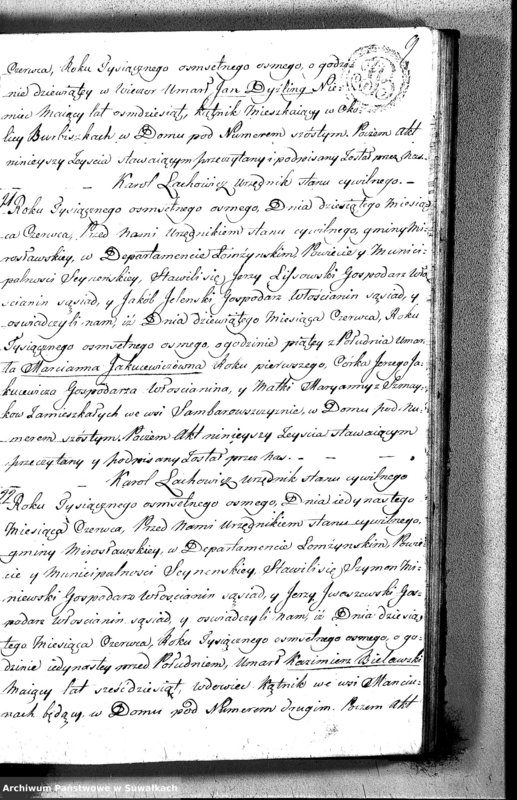 9
Czerwca, Roku Tysiącznego osmsetnego osmego, o godzi=
nie dziewiątey w wieczor Umarł Jan Dyzling Nie=
miec Maiący lat osmdziesiąt, kątnik Mieszkaiący w Oko=
licy Burbiszkach w Domu pod Numerem szóstym. Poczem Akt
ninieyszy Zeyścia stawaiącym przeczytany i podpisany Został przez Nas.
Karol Lachowicz Urzędnik stanu cywilnego. —
71 Roku Tysiącznego osmsetnego osmego, Dnia dziesiątego Miesią=
ca Czerwca, Przed Nami Urzędnikiem stanu cywilnego, gminy Mi=
rosławskiey, w Departamencie Łomżynskim, Powiecie y Munici=
palnosci Seynenskiey, Stawili się Jerzy Lissowski Gospodarz Wło=
scianin sąsiad, y Jakób Jelenski Gospodarz Włoscianin sąsiad, y
oswiadczyli nam, iż Dnia dziewiątego Miesiąca Czerwca, Roku
Tysiącznego osmsetnego osmego, o godzinie piątey z Południa Umar=
ła Marcianna Jakucewiczówna Roku pierwszego, Córka Jerzego Ja=
kucewicza Gospodarza Włoscianina, y Matki Maryanny z Szmay=
kow Zamieszkałych we wsi Sambarowszczyznie, w Domu pod Nu=
merem szóstym. Poczem Akt ninieyszy Zeyscia stawaiącym
przeczytany y podpisany Został przez nas. — — —
Karol Lachowicz Urzędnik stanu cywilnego
72 Roku Tysiącznego osmsetnego osmego, Dnia iedynastego
Miesiąca Czerwca, Przed Nami Urzędnikiem stanu cywilnego,
gminy Mirosławskiey, w Departamencie Łomżynskim, Powie=
cie y Municipalnosci Seynenskiey, Stawili się Szymon Mi=
niewski Gospodarz Włoscianin sąsiad, y Jerzy Juszewski Gos=
podarz Włoscianin sąsiad, y oswiadczyli nam, iż Dnia dziesią=
tego Miesiąca Czerwca, Roku Tysiącznego osmsetnego osmego, o go=
dzinie iedynastey przed Południem, Umarł Kazimierz Bielawski
Maiący lat szesćdziesiąt, wdowiec kątnik we wsi Marciu=
nach będący w Domu pod Numerem drugim. Poczem Akt
Archiwum Państwowe w Suwałkach